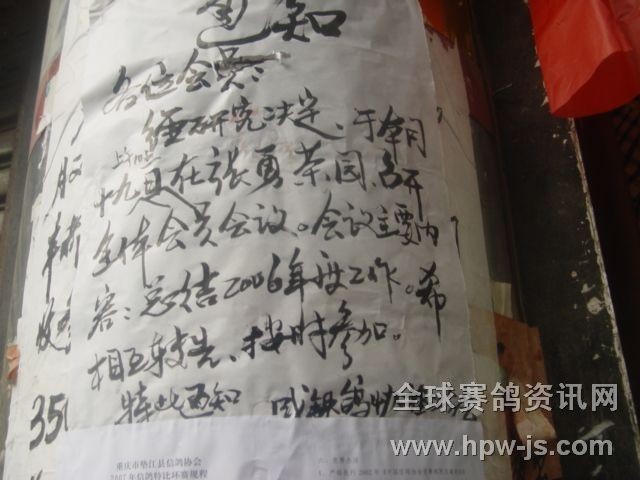 通知
各位会员：
经研究决定、于本月
上午
十九日在张勇茶园召开
全体会员会议。会议主要内
容：总结2006年度工作。希
相互转告、按时参加。
特此通知
350
重庆市垫江县信鸽协会
2007年信鸽特比环赛规程
全球赛鸽资讯网
www.hpw-js.com